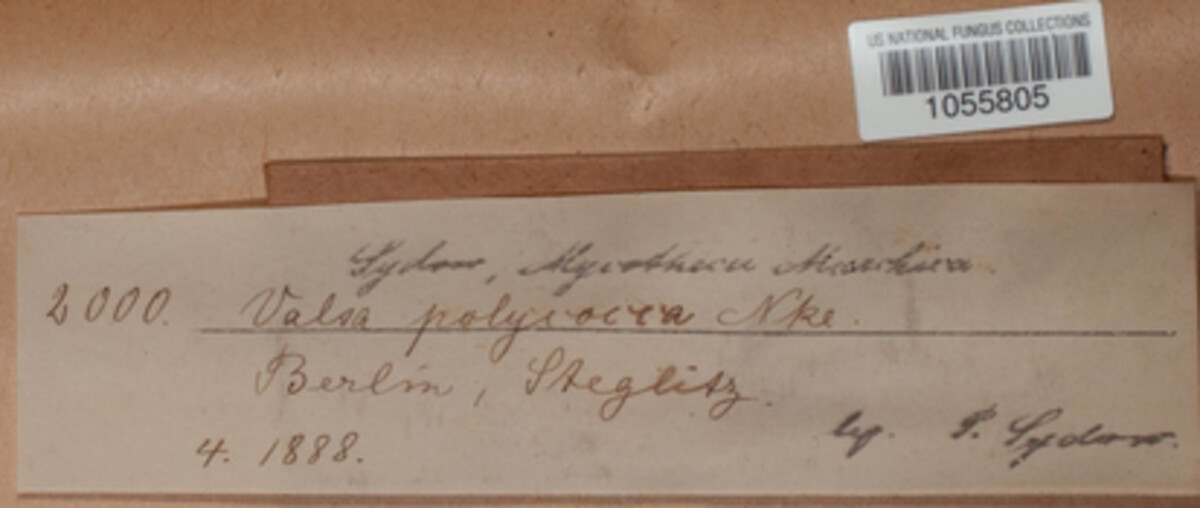 US NATIONAL FUNGUS COLLECTIONS
1055805
Sydow, Mycotheca Marchica
2000. Valsa polycocca Nke.
Berlin, Steglitz.
4. 1888.
leg. P. Sydow.